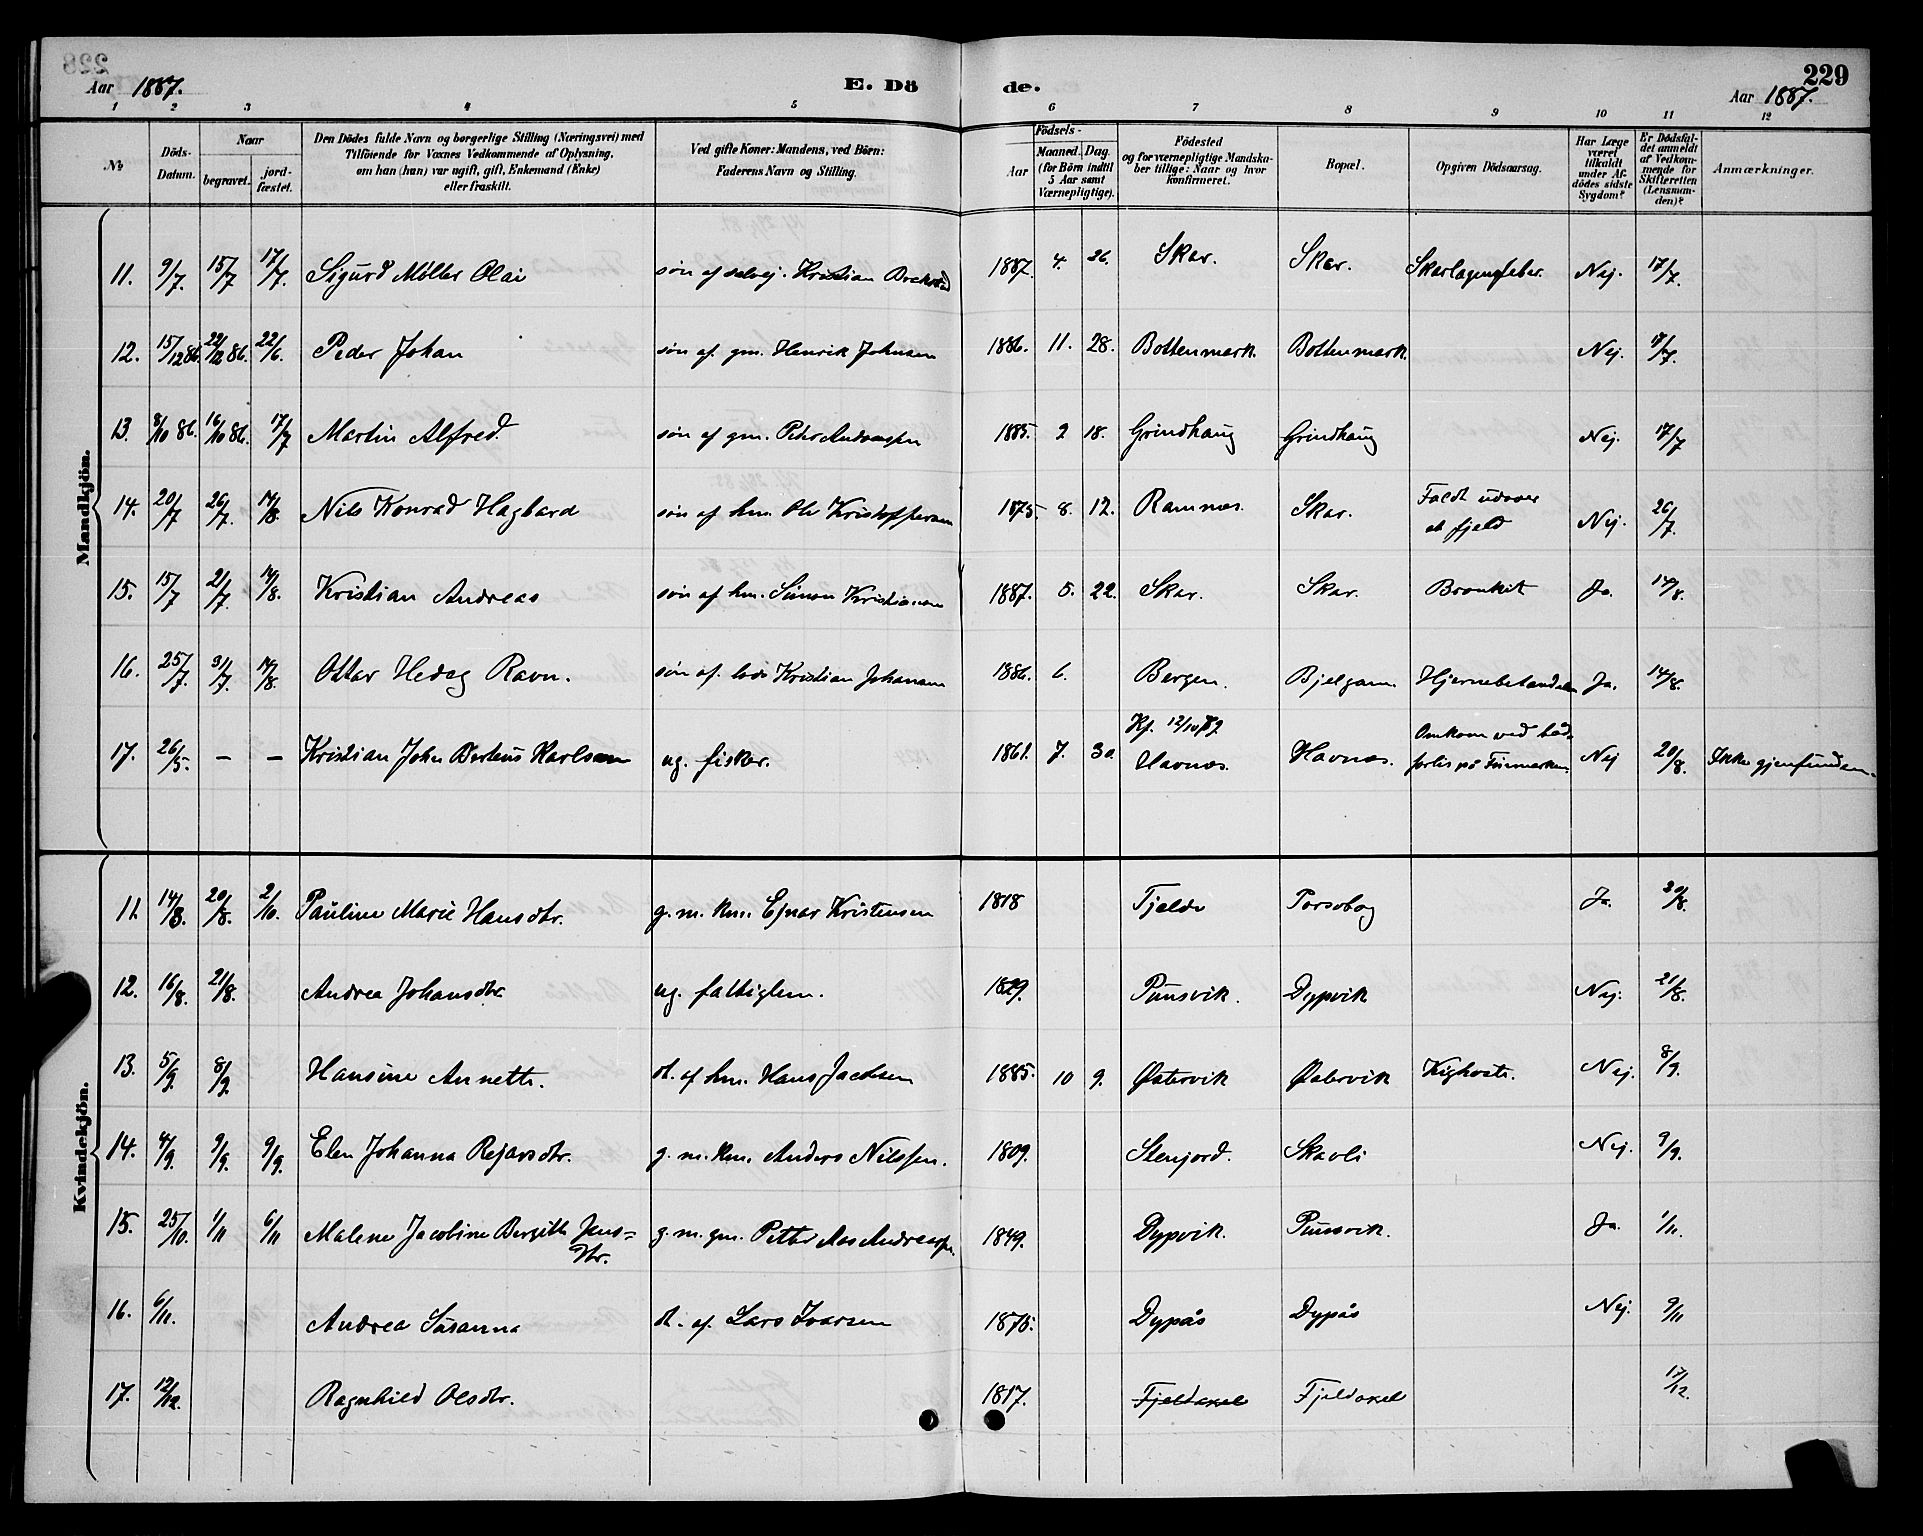 Aar 1887. E. Dö de. 229
Aar 1887.
1 2 3 4 5 6 7 8 9 10 11 12
No
Döds-
Datum.
Naar
begravet. jord-
fæstet.
Den Dödes fulde Navn og borgerlige Stilling (Næringsvei) med
Tilföiende for Voxnes Vedkommende af Oplysning,
om han (hun) var ugift, gift, Enkemand (Enke)
eller fraskilt.
Ved gifte Koner: Mandens, ved Börn:
Faderens Navn og Stilling.
Födsels-
Aar Maaned. Dag.
(for Börn indtil
5 Aar samt
Værnepligtige).
Födested
og for værnepligtige Mandska-
ber tillige: Naar og hvor
konfirmeret.
Bopæl.
Opgiven Dödsaarsag.
Har Læge
været
tilkaldt
under Af-
dödes sidste
Sygdom?
Er Dödsfal-
det anmeldt
af Vedkom-
mende for
Skifteretten
(Lensman-
den)?
Anmærkninger.
Mandkjön.
11. 9/7. 15/7 17/7. Sigurd Möller Olai søn af selvej. Kristian 1887. 4. 26. Skar. Skar. Skarlagensfeber. Nej. 17/7.
12. 15/12 86. 22/12 86. 22/6. Peder Johan søn af gm. Henrik Johnsen 1886. 11. 28. Bottenmark. Bottenmark. Nej. 17/7.
13. 8/10 86. 16/10 86. 17/7 Martin Alfred søn af gm. Peder Andreassen 1885. 2 18. Grindhaug Grindhaug Nej. 17/7
14. 20/7 26/7. 14/8. Nils Konrad Hagbard søn af hm. Ole Kristoffersen 1875. 8. 12. Ramnes. Skar. Faldt udover
et fjeld Nej. 26/7.
15. 15/7 21/7. 14/8. Kristian Andreas søn af hm. Simon Kristiansen 1887. 5. 22. Skar. Skar. Bronkit Ja. 14/8.
16. 25/7. 31/7. 14/8. Ottar Hedeg Ravn. søn af lods Kristian Johansen 1886. 6. Bergen. Bjelgam. Hjernebetændelse Ja. 14/8.
17. 26/5. — — Kristian John Berteus Karlsen ug. fisker. 1861. 7. 30. Kf. 12/10 79
Havnes. Havnes. Omkom ved båd-
forlis på Finmarken. Nej 20/8. Ikke gjenfunden.
Kvindekjön.
11. 14/8. 20/8. 2/10. Pauline Marie Hansdtr. g. m. km. Ejnar Kristensen 1818 Tjelde Porsobog Ja. 20/8.
12. 16/8. 21/8. Andrea Johansdtr. ug. fattiglem. 1829. Punsvik. Dypvik Nej. 21/8.
13. 5/9. 8/9. Hansine Annette. dt. af hm. Hans Jacobsen 1885. 10 9. Østervik Østervik Kighoste. Nej. 8/9.
14. 4/9. 9/9. 9/9. Elen Johanna Rejarsdtr. g. m. km. Anders Nilssen. 1809. Stenjord. Skavli Nej. 9/9.
15. 25/10. 1/11 6/11 Malene Jacobine Bergitte Jens=
dtr. g. m. gm. Petter Aas Andreassen 1849. Dypvik. Punsvik. Ja. 1/11.
16. 6/11. Andrea Susanna dt. af Lars Ivarsen 1875. Dypås Dypås Nej. 9/11
17. 12/12. Ragnhild Olsdtr. 1817. Fjeldaxel Fjeldaxel 17/12.